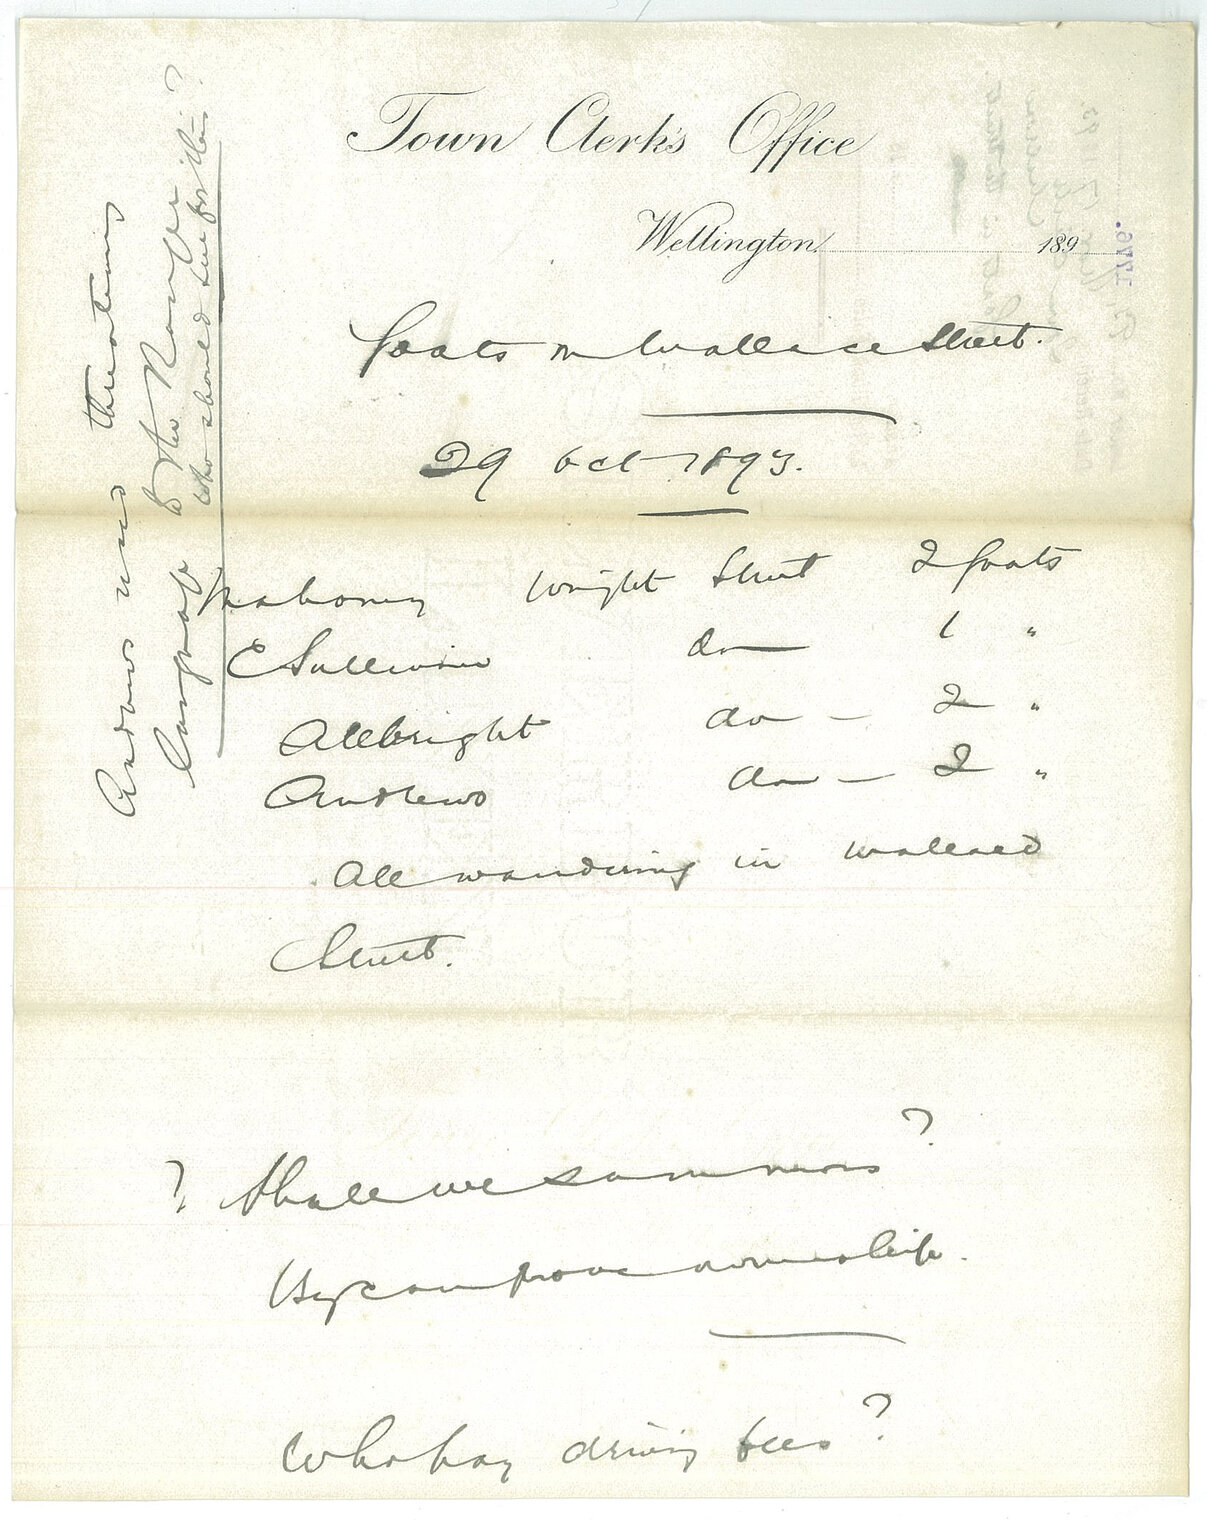 Town Clerk's Office
Wellington 189
Goats in Wallace Street.
29 Oct 1893.
Mahoney Wright Street 2 Goats
E Sullivan do — 1 "
Allbright do — 2 "
Andrews do — 2 "
All wandering in Wallace
Street.
? Shall we summons ?
They can prove ownership.
Who pay driving fees ?
Andrews used threatening
language to the Ranger
Who should sue for this ?
1776.